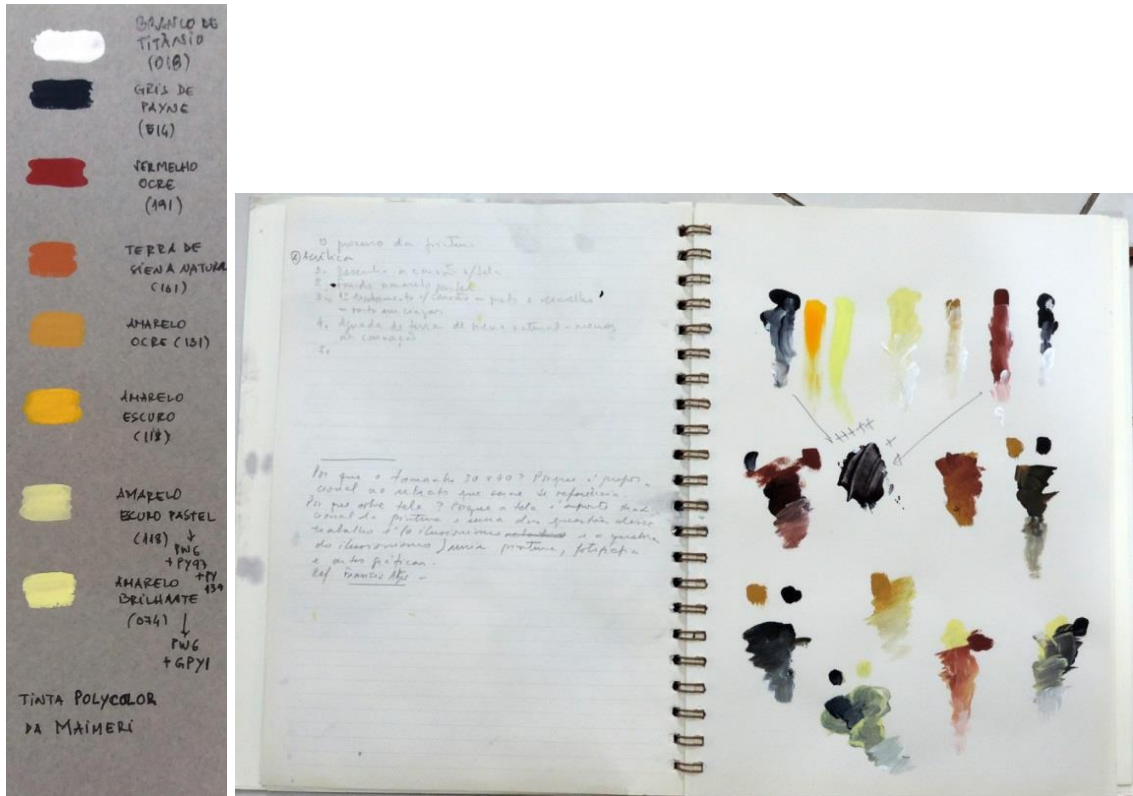 BRANCO DE
TITÂNIO
(018)
GRIS DE
PAYNE
(514)
VERMELHO
OCRE
(191)
TERRA DE
SIENA NATURA
(161)
AMARELO
OCRE (131)
AMARELO
ESCURO
(118)
AMARELO
ESCURO PASTEL
(118)
PW6
+PY93
+PY
139
AMARELO
BRILHANTE
(074)
PW6
+GPY1
TINTA POLYCOLOR
DA MAIMERI
O processo da pintura
Acrílica
1. Desenho a carvão s/tela
2. Fundo amarelo pastel
3. 1º tratamento c/ carvão preto e vermelho
4. Aguada de terra de siena natural
5.
Por que o tamanho 30 x 40? Porque é propor
cional ao retrato que serve de referência.
Por que sobre tela? Porque a tela é suporte tradi
cional da pintura e uma das questões desse
trabalho é o ilusionismo e a quebra
do ilusionismo pintura, fotografia
e artes gráficas.
Ref. Francis Alÿs